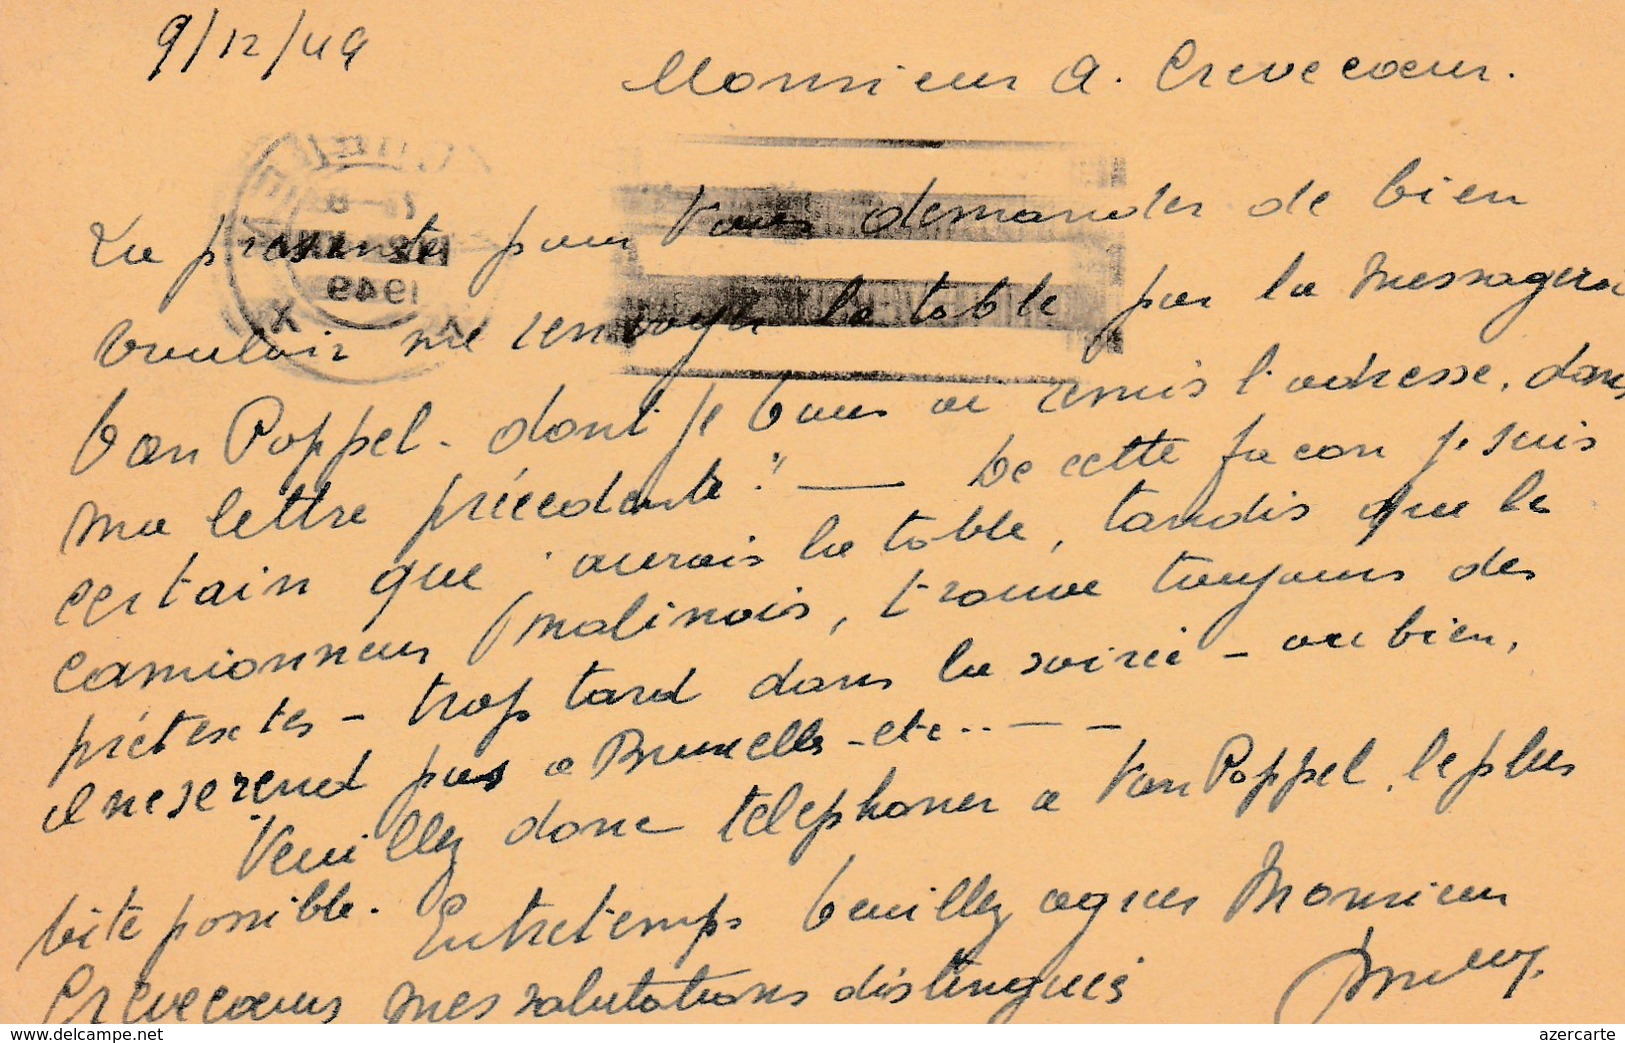 9/12/49
Monsieur A. Crevecoeur.
La présente pour Vous demander de bien
vouloir me renvoyer la table par la messagerie
Van Poppel - dont je vous ai remis l'adresse, dans
ma lettre précédente" — De cette facon je suis
certain que j'aurais la table, tandis que le
camionneur malinois, trouve toujours des
prétextes - trop tard dans la soirée - ou bien,
il ne se rend pas a Bruxelles - etc.. — –
Veuillez donc telephoner a Van Poppel, le plus
vite possible. Entretemps veuillez agréer Monsieur
Crevecoeur mes salutations distingués
1949
X X
delcampe.net
azercarte